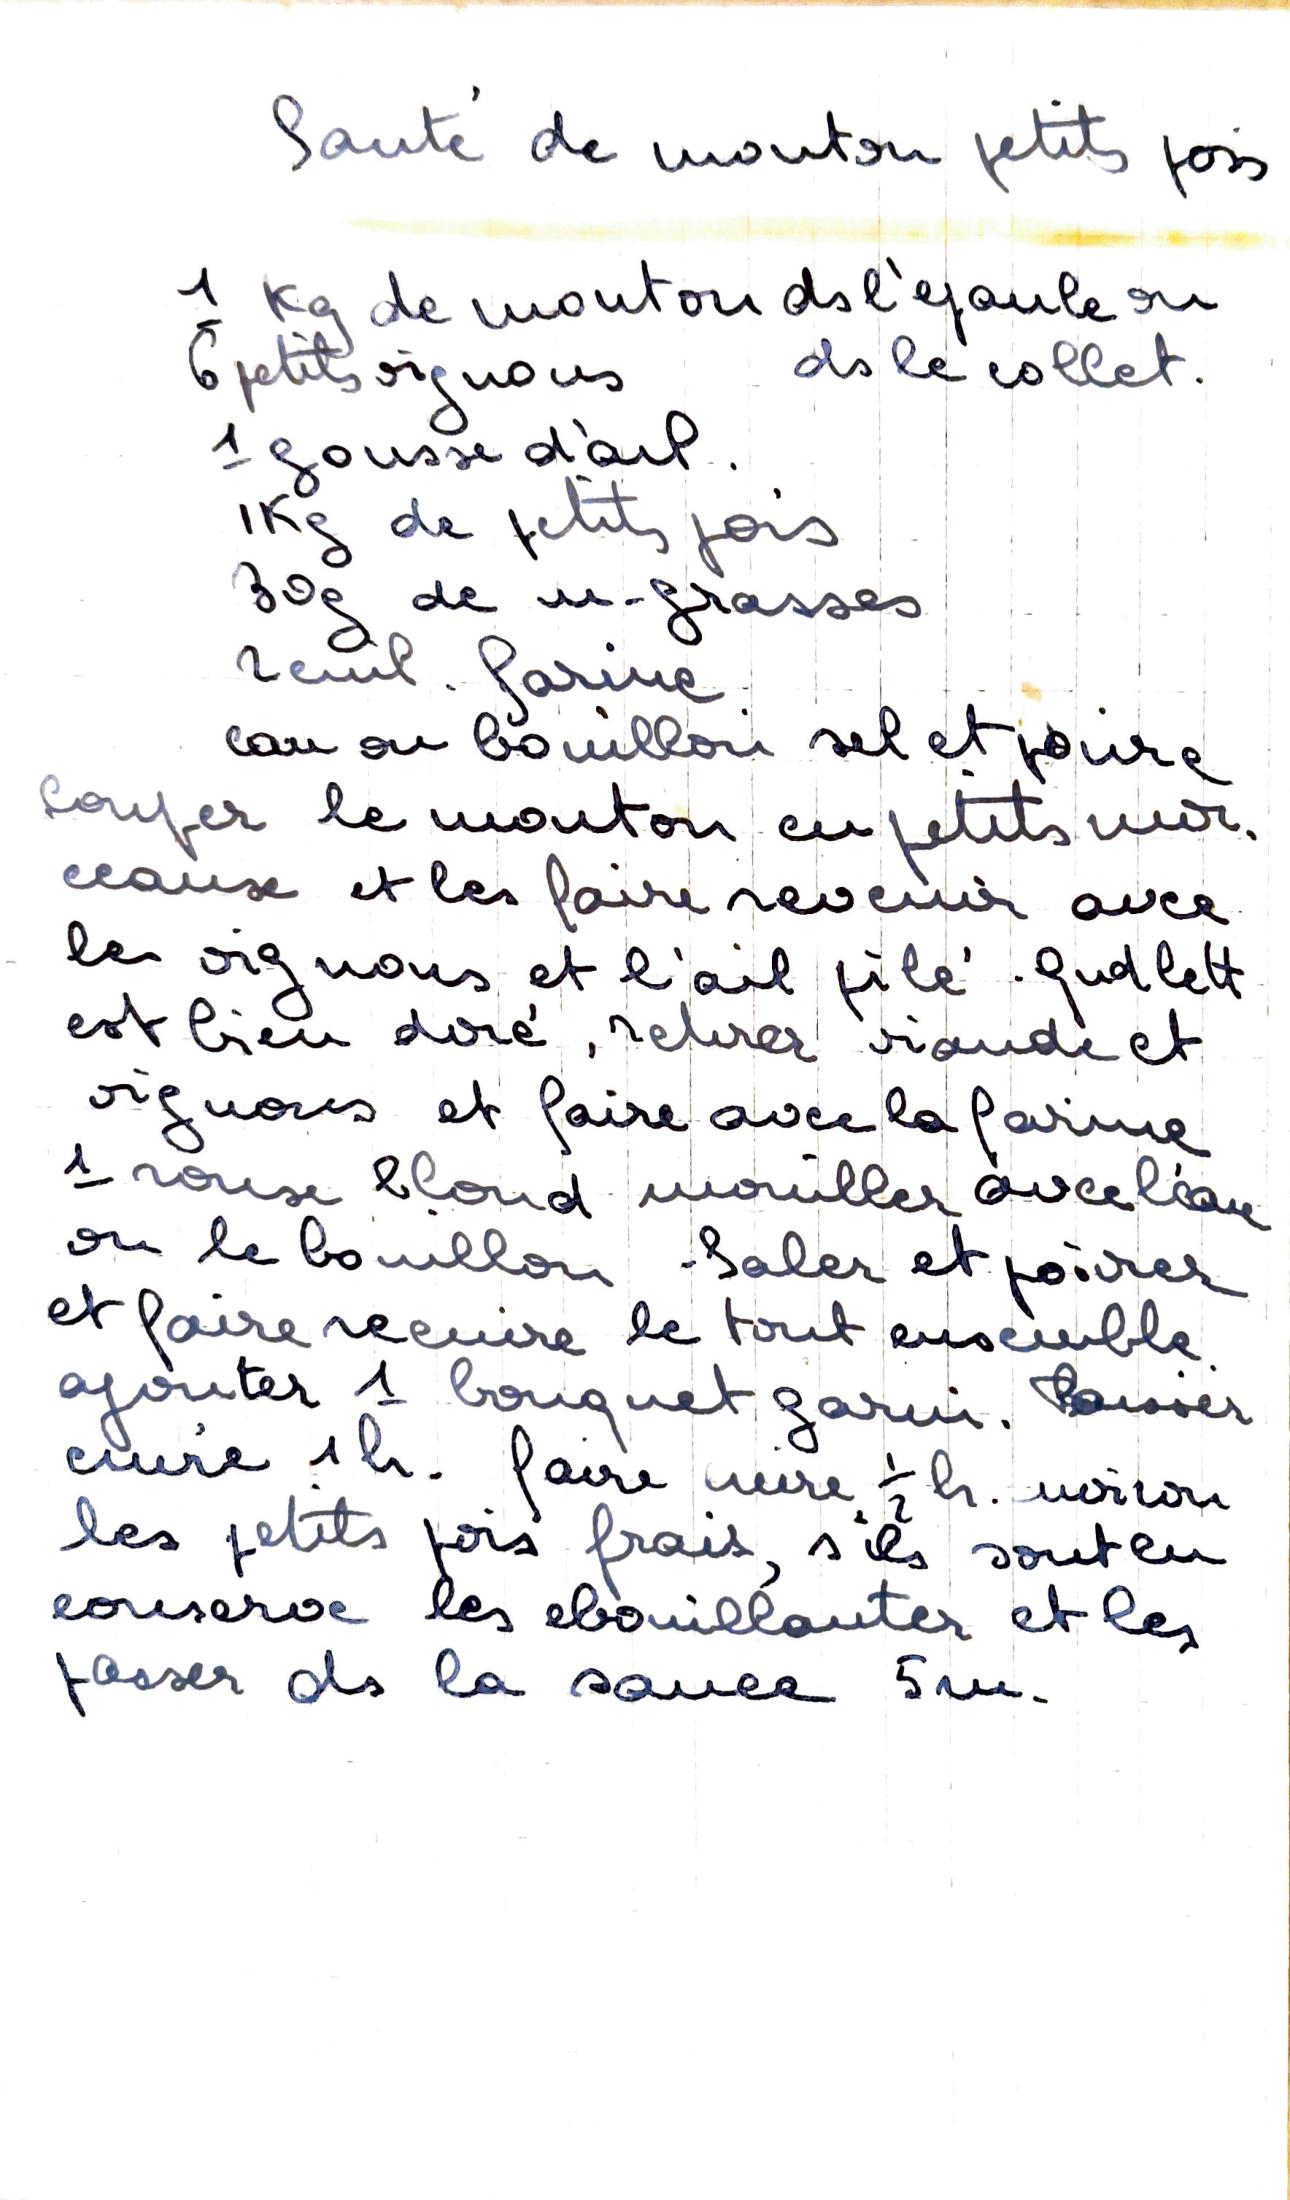 Sauté de mouton petits pois
1 Kg de mouton ds l'épaule ou
6 petits oignons ds le collet.
1 gousse d'ail.
1Kg de petits pois
30g de m-grasses
2 cuil. farine
eau ou bouillon sel et poivre
Couper le mouton en petits mor.
ceaux et les faire revenir avec
les oignons et l'ail pilé. Qud le tt
est bien doré, retirer viande et
oignons et faire avec la farine
1 roux blond mouiller avec l'eau
ou le bouillon - Saler et poivrer
et faire recuire le tout ensemble.
ajouter 1 bouquet garni. Laisser
cuire 1h. faire cuire 1/2 h. environ
les petits pois frais, s'ils sont en
conserve les ebouillanter et les
passer ds la sauce 5 m.